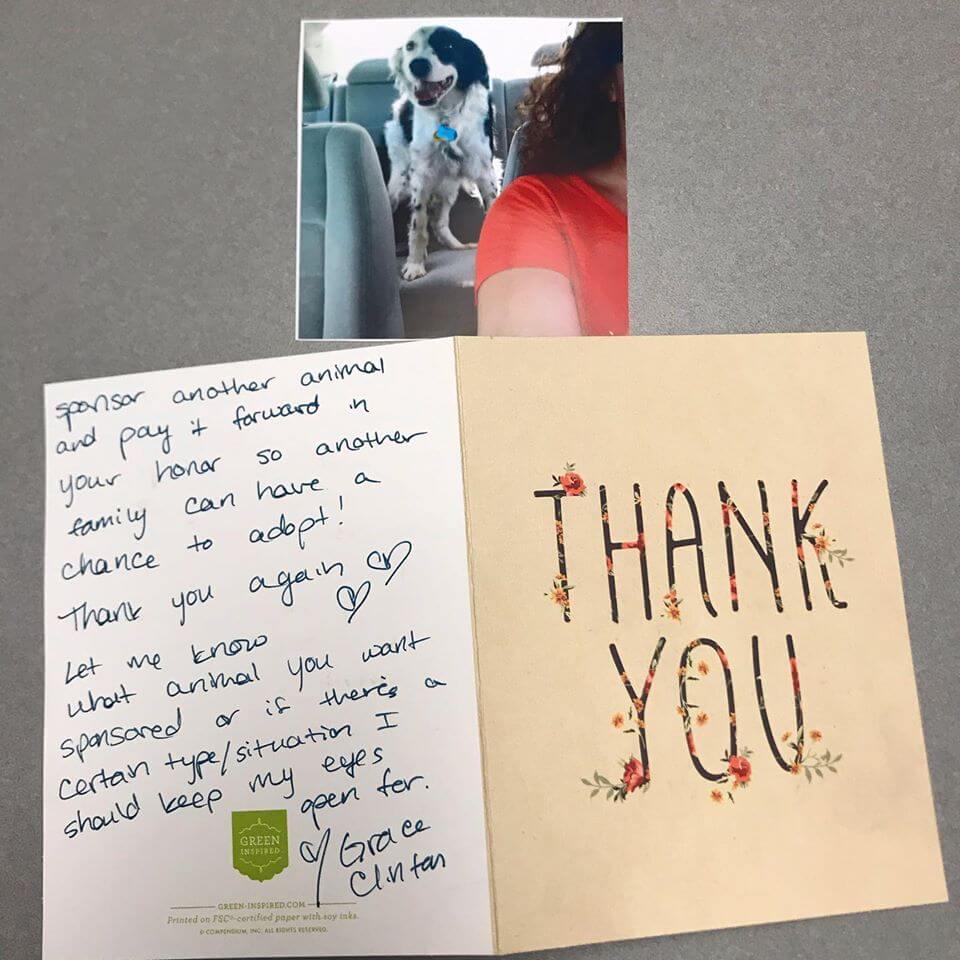 sponsor another animal
and pay it forward in
your honor so another
family can have a
chance to adopt!
Thank you again
Let me know
what animal you want
sponsored or if there's a
certain type/situation I
should keep my eyes
open for.
Grace
Clinton
GREEN
INSPIRED
GREEN-INSPIRED.COM
Printed on FSC®-certified paper with soy inks.
© COMPENDIUM, INC. ALL RIGHTS RESERVED.
THANK
YOU